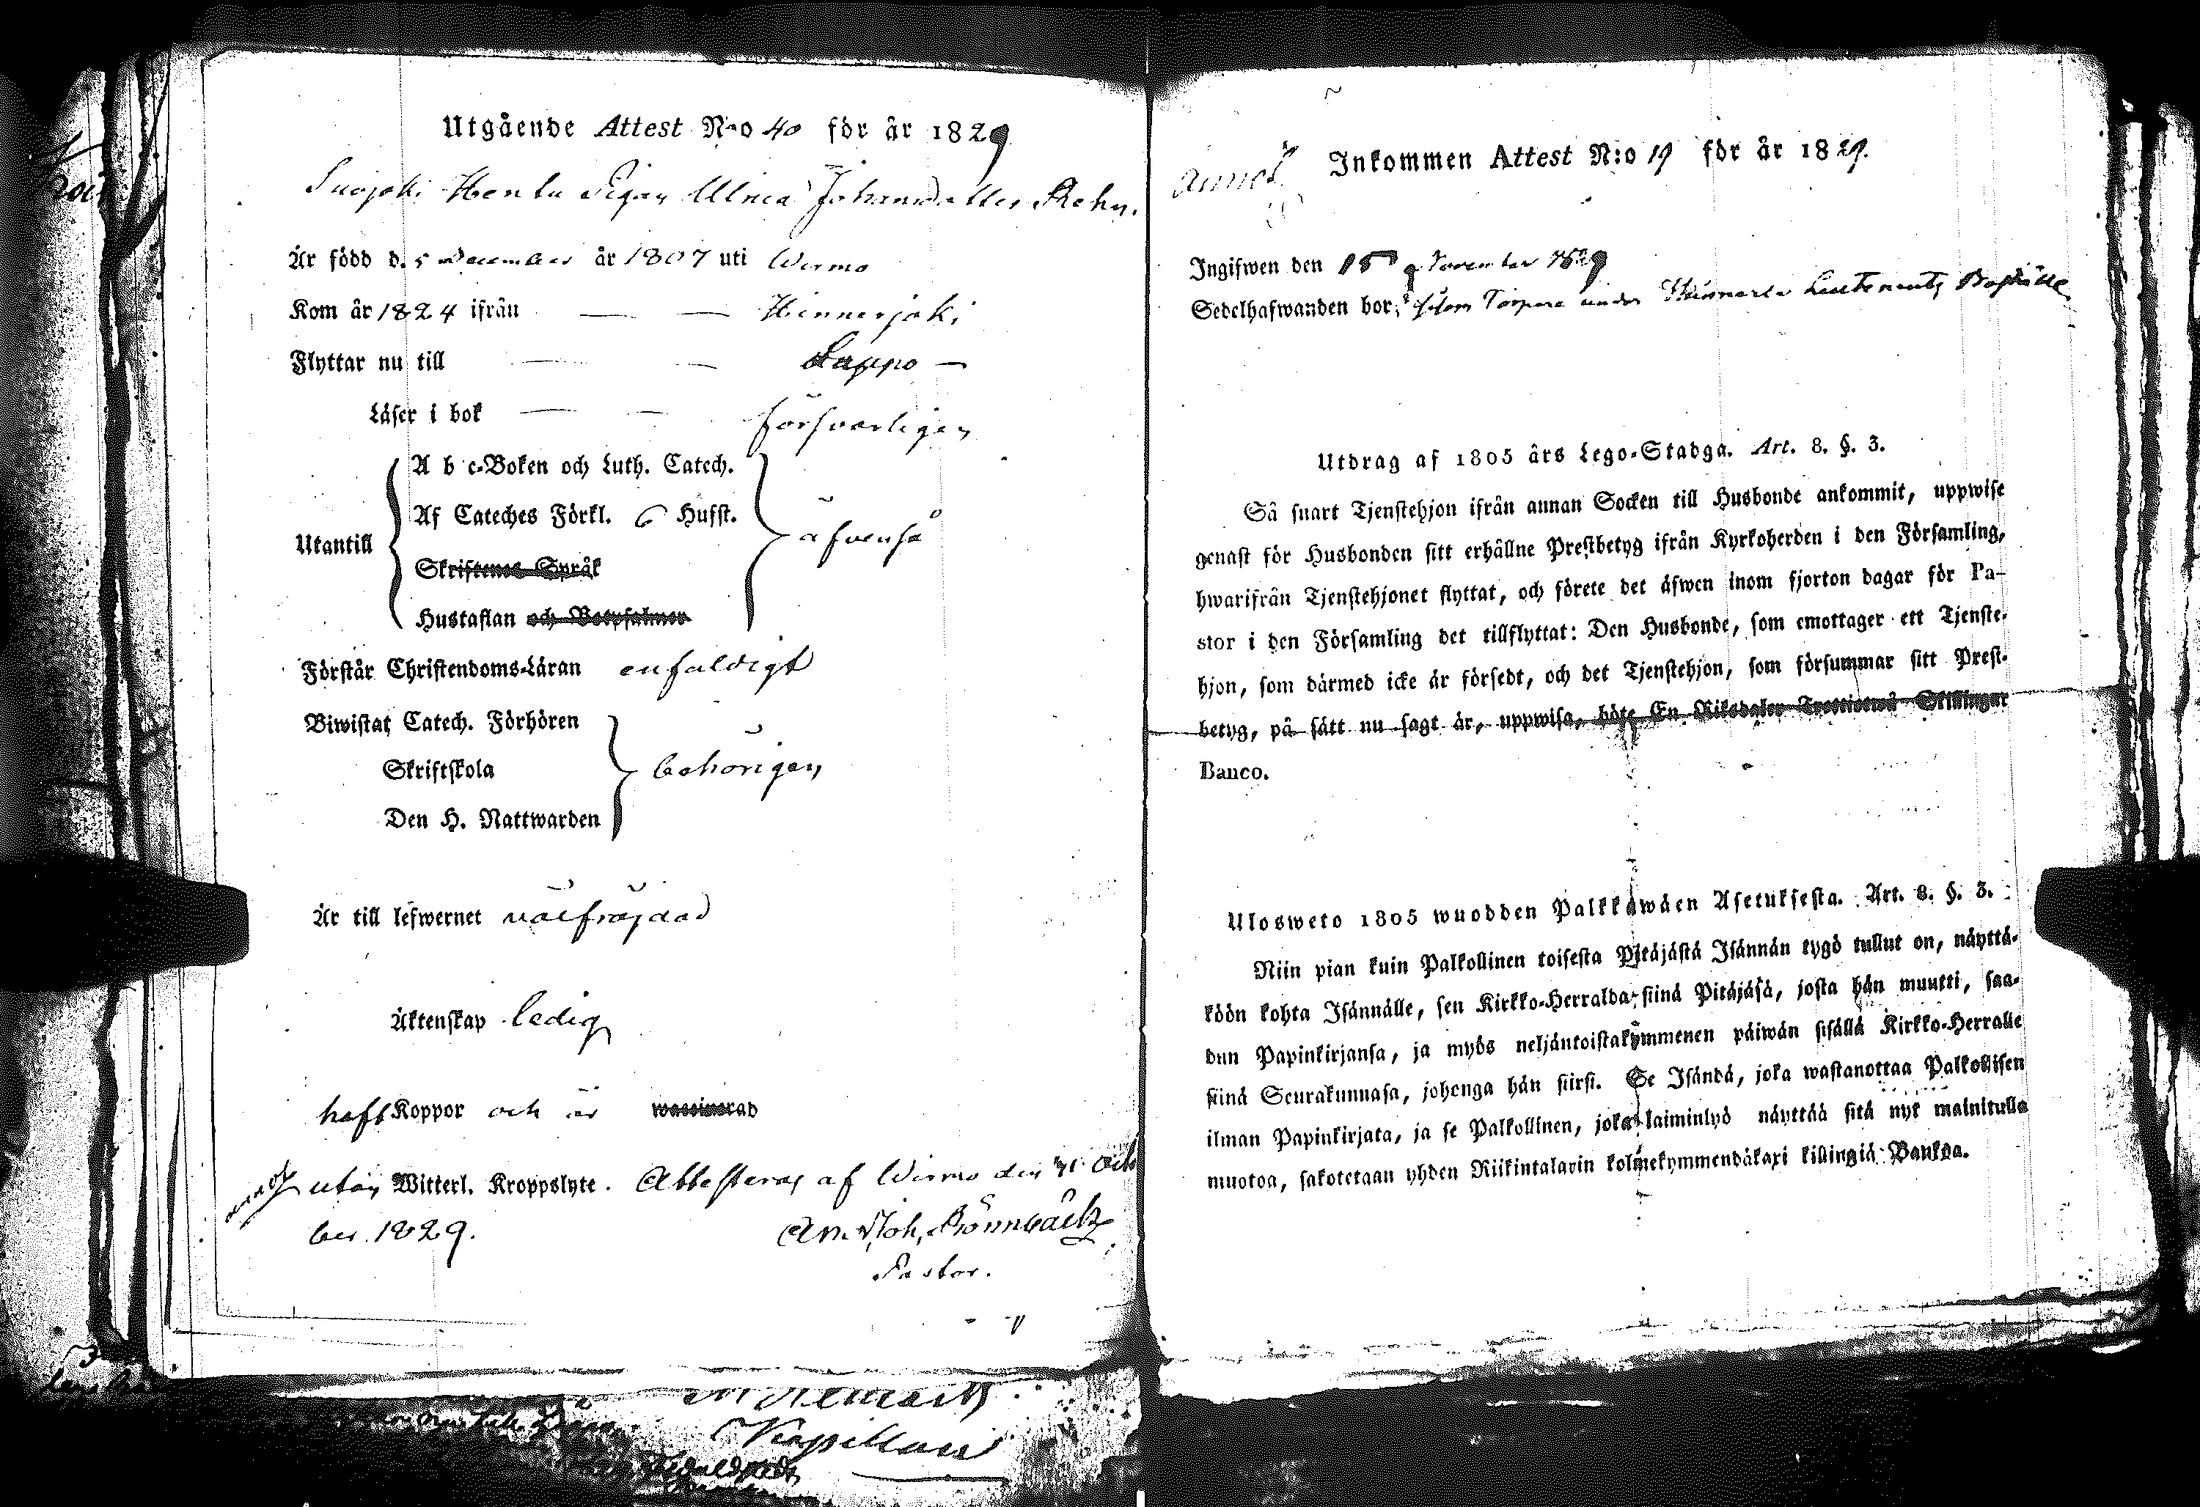 Utgående Attest N:o 40 för år 1829
Suojoki Henta Pigan Ulrica Johansdotter Rehn.
Är född d. 5 December år 1807 uti Wirmo
Kom år 1824 ifrån — — Hinnerjoki
Flyttar nu till — — Lappo —
Läser i bok — — försvarligen
A b c-Boken och Luth. Catech.
Af Cateches Förkl. 6 Hufst.
Utantill äfvenså
Skriftenes Språk
Hustaflan och Botpsalmer
Förstår Christendoms-Läran enfaldigt
Biwistat Catech. Förhören
Skriftskola behörigen
Den H. Nattwarden
Är till lefwernet välfräjdad
Äktenskap ledig
haft Koppor och är waccinerad
utan Witterl. Kroppslyte. Attesteras af Wirmo den 31 Octo
ber 1829. And. Joh. Rönnbäck
Pastor.
Kapellan
Inkommen Attest N:o 19 för år 1829.
Ingifwen den 15 November 1829
Sedelhafwanden bor, som Torpare under Lieutenants Boställe
Utdrag af 1805 års Lego-Stadga. Art. 8. §. 3.
Så snart Tjenstehjon ifrån annan Socken till Husbonde ankommit, uppwise
genast för Husbonden sitt erhållne Prestbetyg ifrån Kyrkoherden i den Församling,
hwarifrån Tjenstehjonet flyttat, och förete det äfwen inom fjorton dagar för Pa-
stor i den Församling det tillflyttat: Den Husbonde, som emottager ett Tjenste-
hjon, som därmed icke är försedt, och det Tjenstehjon, som försummar sitt Prest-
betyg, på sätt nu sagt är, uppwisa, böte En Riksdaler Trettiotwå Skillingar
Banco.
Ulosweto 1805 wuodden Palkkawäen Asetuksesta. Art. 8. §. 3.
Niin pian kuin Palkollinen toisesta Pitäjästä Isännän tygö tullut on, näyttä-
köön kohta Isännälle, sen Kirkko-Herralda siinä Pitäjäsä, josta hän muutti, saa-
dun Papinkirjansa, ja myös neljäntoistakymmenen päiwän sisällä Kirkko-Herralle
siinä Seurakunnasa, johenga hän siirsi. Se Isändä, joka wastanottaa Palkollisen
ilman Papinkirjata, ja se Palkollinen, joka laiminlyö näyttää sitä nyt mainitulla
muotoa, sakotetaan yhden Riikintalarin kolmekymmendäkaxi killingiä Bankoa.